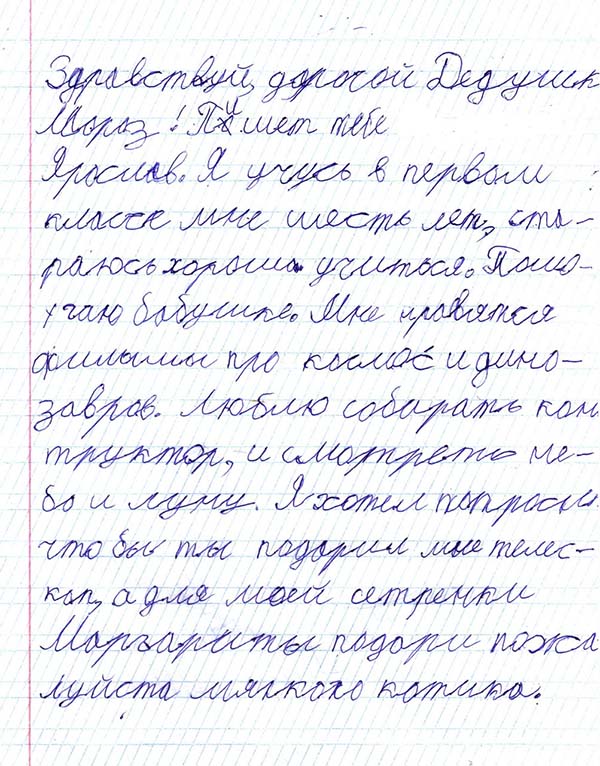 Здравствуй, дорогой Дедушк
Мороз! Пишет тебе
Ярослав. Я учусь в первом
классе мне шесть лет, ста-
раюсь хорошо учиться. Помо-
гаю бабушке. Мне нравятся
фильмы про космос и дино-
завров. Люблю собирать кон
труктор, и смотреть не-
бо и луну. Я хотел попроси
что бы ты подарил мне телес-
коп, а для моей сетренки
Маргариты подари пожа
луйста мягкого котика.